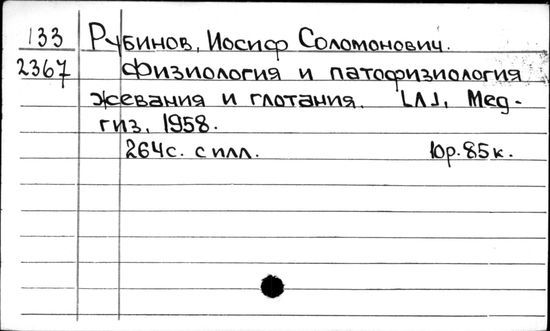 133 Рубинов, Иосиф Соломонович.
2367 Физиология и патофизиология
жевания и глотания. [Л], Мед-
гиз, 1958.
264с. с илл. 10р.85к.